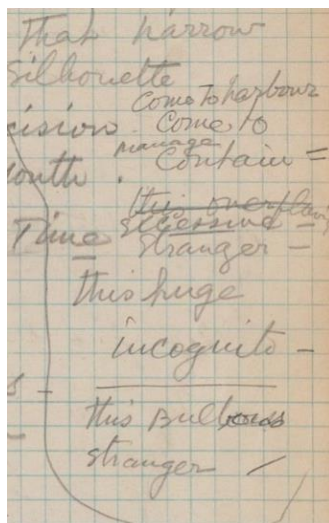 that narrow
silhouette
come to harbour
cision. come to
manage
outh. contain =
this overflowing
Time excessive =
stranger =
this huge
incognito -
s -
this bulbous
stranger /